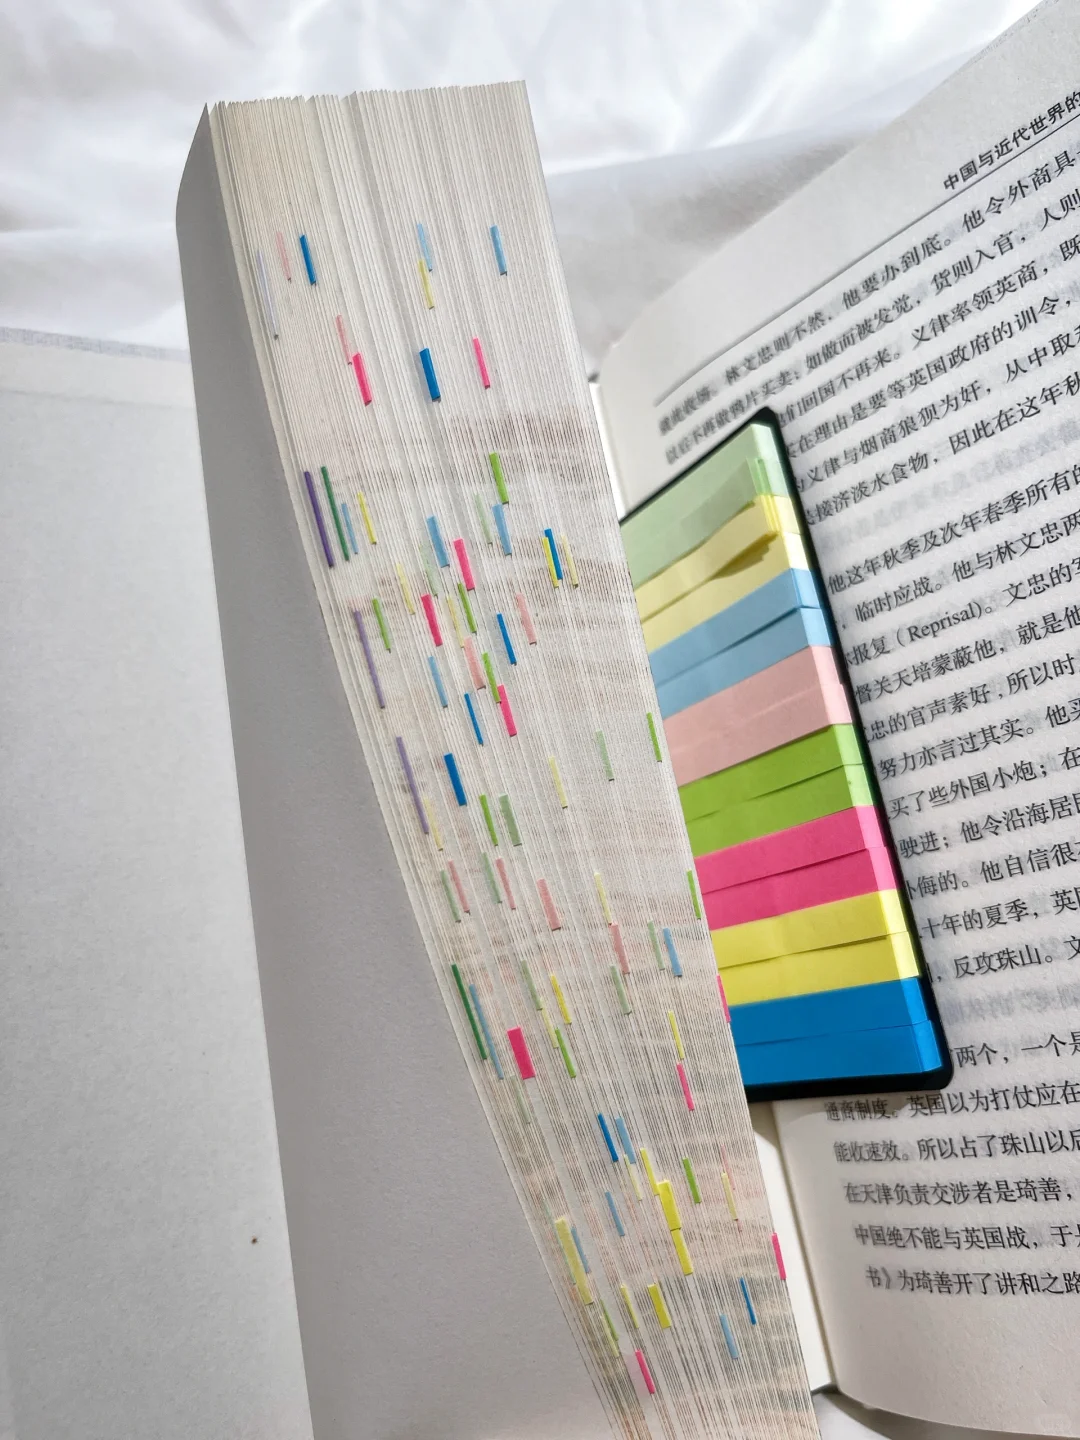 中国与近代世界的
彼此收场。林文忠则不然，他要办到底。他令外商具
以后不再做鸦片买卖；如做而被发觉，货则入官，人则
们回国不再来。义律率领英商，既
在理由是要等英国政府的训令，
义律与烟商狼狈为奸，从中取
接济淡水食物，因此在这年秋
他这年秋季及次年春季所有的
，临时应战。他与林文忠两
报复（Reprisal）。文忠的军
督关天培蒙蔽他，就是他
忠的官声素好，所以时
努力亦言过其实。他买
买了些外国小炮；在
驶进；他令沿海居民
外侮的。他自信很
十年的夏季，英国
，反攻珠山。文
两个，一个是
通商制度。英国以为打仗应在
能收速效。所以占了珠山以后
在天津负责交涉者是琦善，
中国绝不能与英国战，于是
书》为琦善开了讲和之路